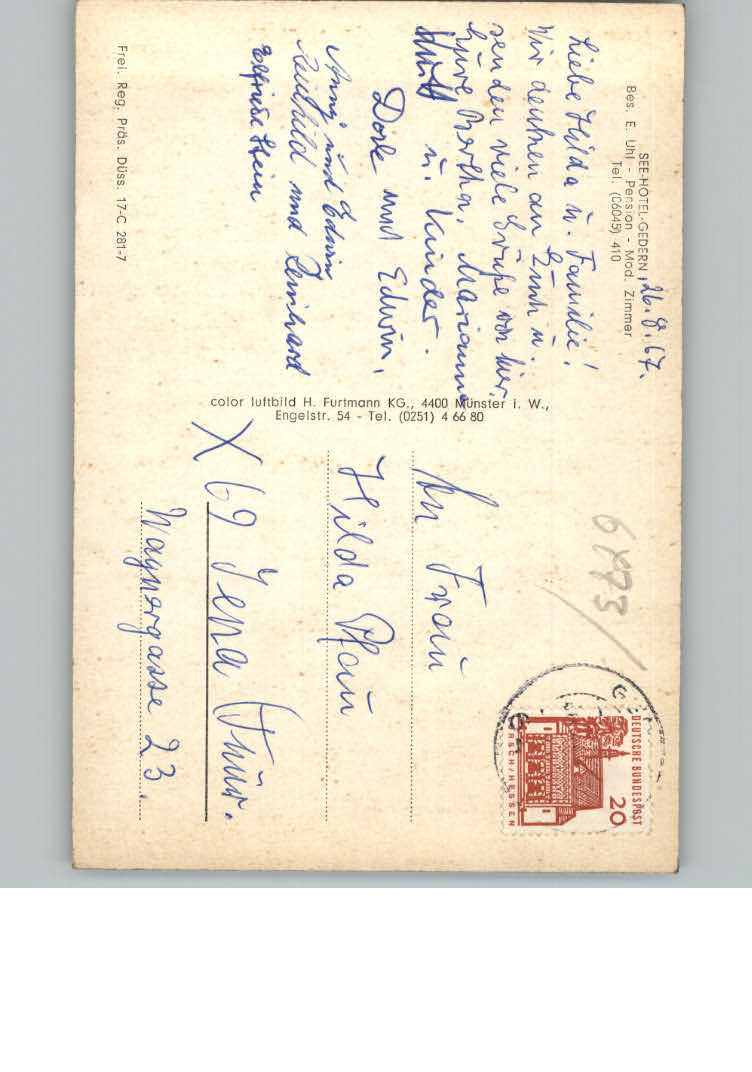 SEE-HOTEL-GEDERN
Bes. E. Uhl - Pension - Mod. Zimmer
Tel. (06045) 410
26.8.67.
Liebe Hilda u. Familie!
Wir denken an Euch u.
senden viele Grüße von hier.
Eure Bertha, Marianne
u. Kinder.
Dore und Edwin,
Anny und Edwin
und Reinhard
Elfriede Stein
Frei. Reg. Präs. Düss. 17-C 281-7
color luftbild H. Furtmann KG., 4400 Münster i. W.,
Engelstr. 54 - Tel. (0251) 4 66 80
6873/
DEUTSCHE BUNDESPOST
20
RSCH/HESSEN
An Frau
Hilda Pfau
X 69 Jena (Thür.
Wagnergasse 23.